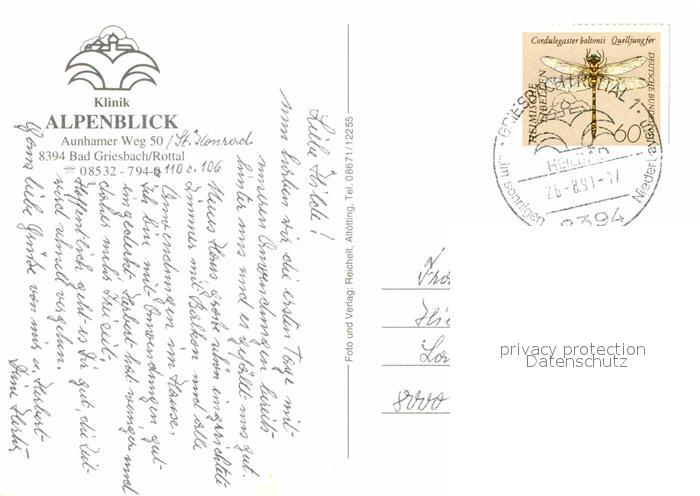 Klinik
ALPENBLICK
Aunhamer Weg 50 / St. Konrad
8394 Bad Griesbach/Rottal
☏ 08532 - 794-0 110 o. 106
Liebe Hilde!
Nun haben wir die ersten Tage mit
unseren Anwendungen bereits
hinter uns und es gefällt uns gut.
Neues Haus große schön eingerichtete
Zimmer mit Balkon und alle
Anwendungen im Hause.
Ich bin mit Anwendungen gut
eingedeckt. Herbert hat weniger und
daher mehr Freizeit.
Hoffentlich geht es Dir gut, die Zeit
wird schnell vergehen.
Ganz liebe Grüße von mir u. Herbert
Deine
Foto und Verlag: Reichelt, Altötting, Tel. 08671/12255
Cordulegaster boltonii Quelljungfer
HEIMISCHE
LIBELLEN
DEUTSCHE BUND
60
GRIESBACH I ROTTAL 1
HEILBAD
26.-8.91-17
...im sonnigen Niederbayern
8394
8000
privacy protection
Datenschutz